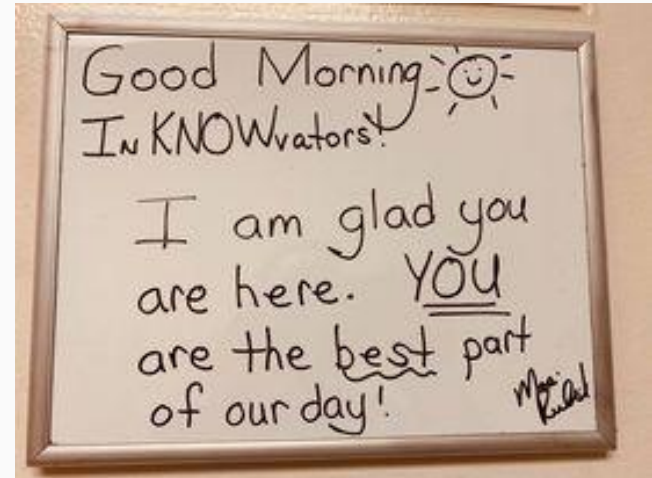 Good Morning
InKNOWvators!
I am glad you
are here. YOU
are the best part
of our day!